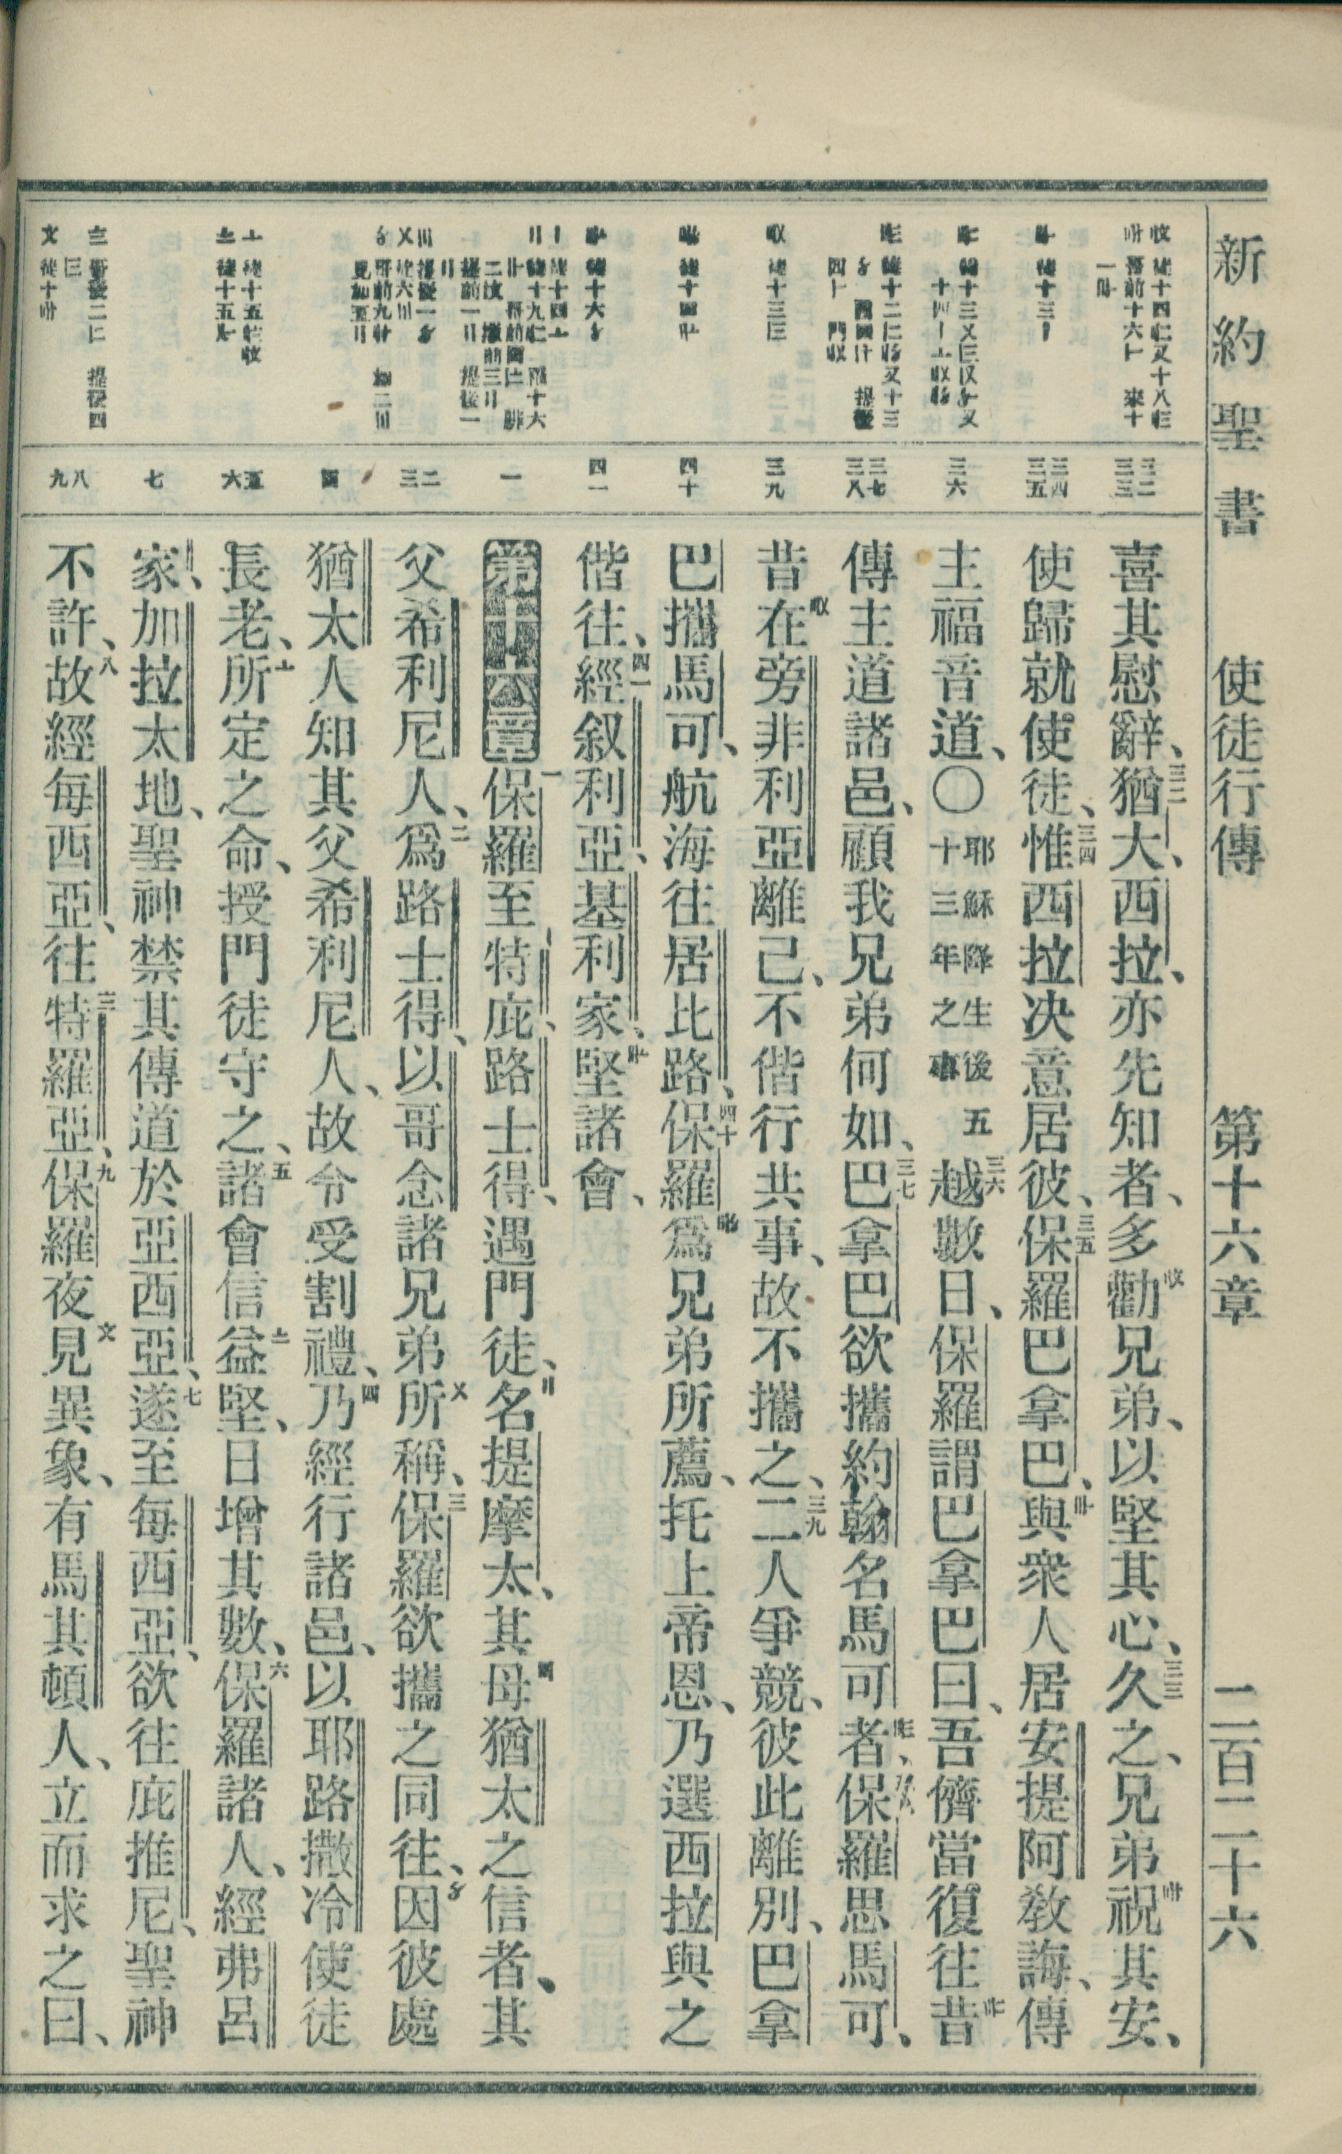 新約聖書 使徒行傳 第十六章 二百二十六
三二 三三
三四 三五
三六
三七 三八
三九
四十
四一
一
二 三
四
五 六
七
八 九
喜其慰辭、三二猶大、西拉、亦先知者、多勸兄弟、以堅其心、三三久之、兄弟祝其安、
使歸就使徒、三四惟西拉决意居彼、三五保羅巴拿巴、與衆人居安提阿敎誨、傳
主福音道、〇耶穌降生後五十三年之事三六越數日、保羅謂巴拿巴曰、吾儕當復往昔
傳主道諸邑、顧我兄弟何如、三七巴拿巴欲攜約翰名馬可者、三八保羅思馬可、
昔在旁非利亞離己、不偕行共事、故不攜之、三九二人爭競、彼此離別、巴拿
巴攜馬可、航海往居比路、四十保羅爲兄弟所薦、托上帝恩、乃選西拉與之
偕往、四一經叙利亞、基利家、堅諸會、
第十六章 一保羅至特庇、路士得、遇門徒、名提摩太、其母猶太之信者、其
父希利尼人、二爲路士得、以哥念諸兄弟所稱、三保羅欲攜之同往、因彼處
猶太人知其父希利尼人、故令受割禮、四乃經行諸邑、以耶路撒冷使徒
長老、所定之命、授門徒守之、五諸會信益堅、日增其數、六保羅諸人、經弗呂
家、加拉太地、聖神禁其傳道於亞西亞、七遂至每西亞、欲往庇推尼、聖神
不許、八故經每西亞、往特羅亞、九保羅夜見異象、有馬其頓人、立而求之曰、